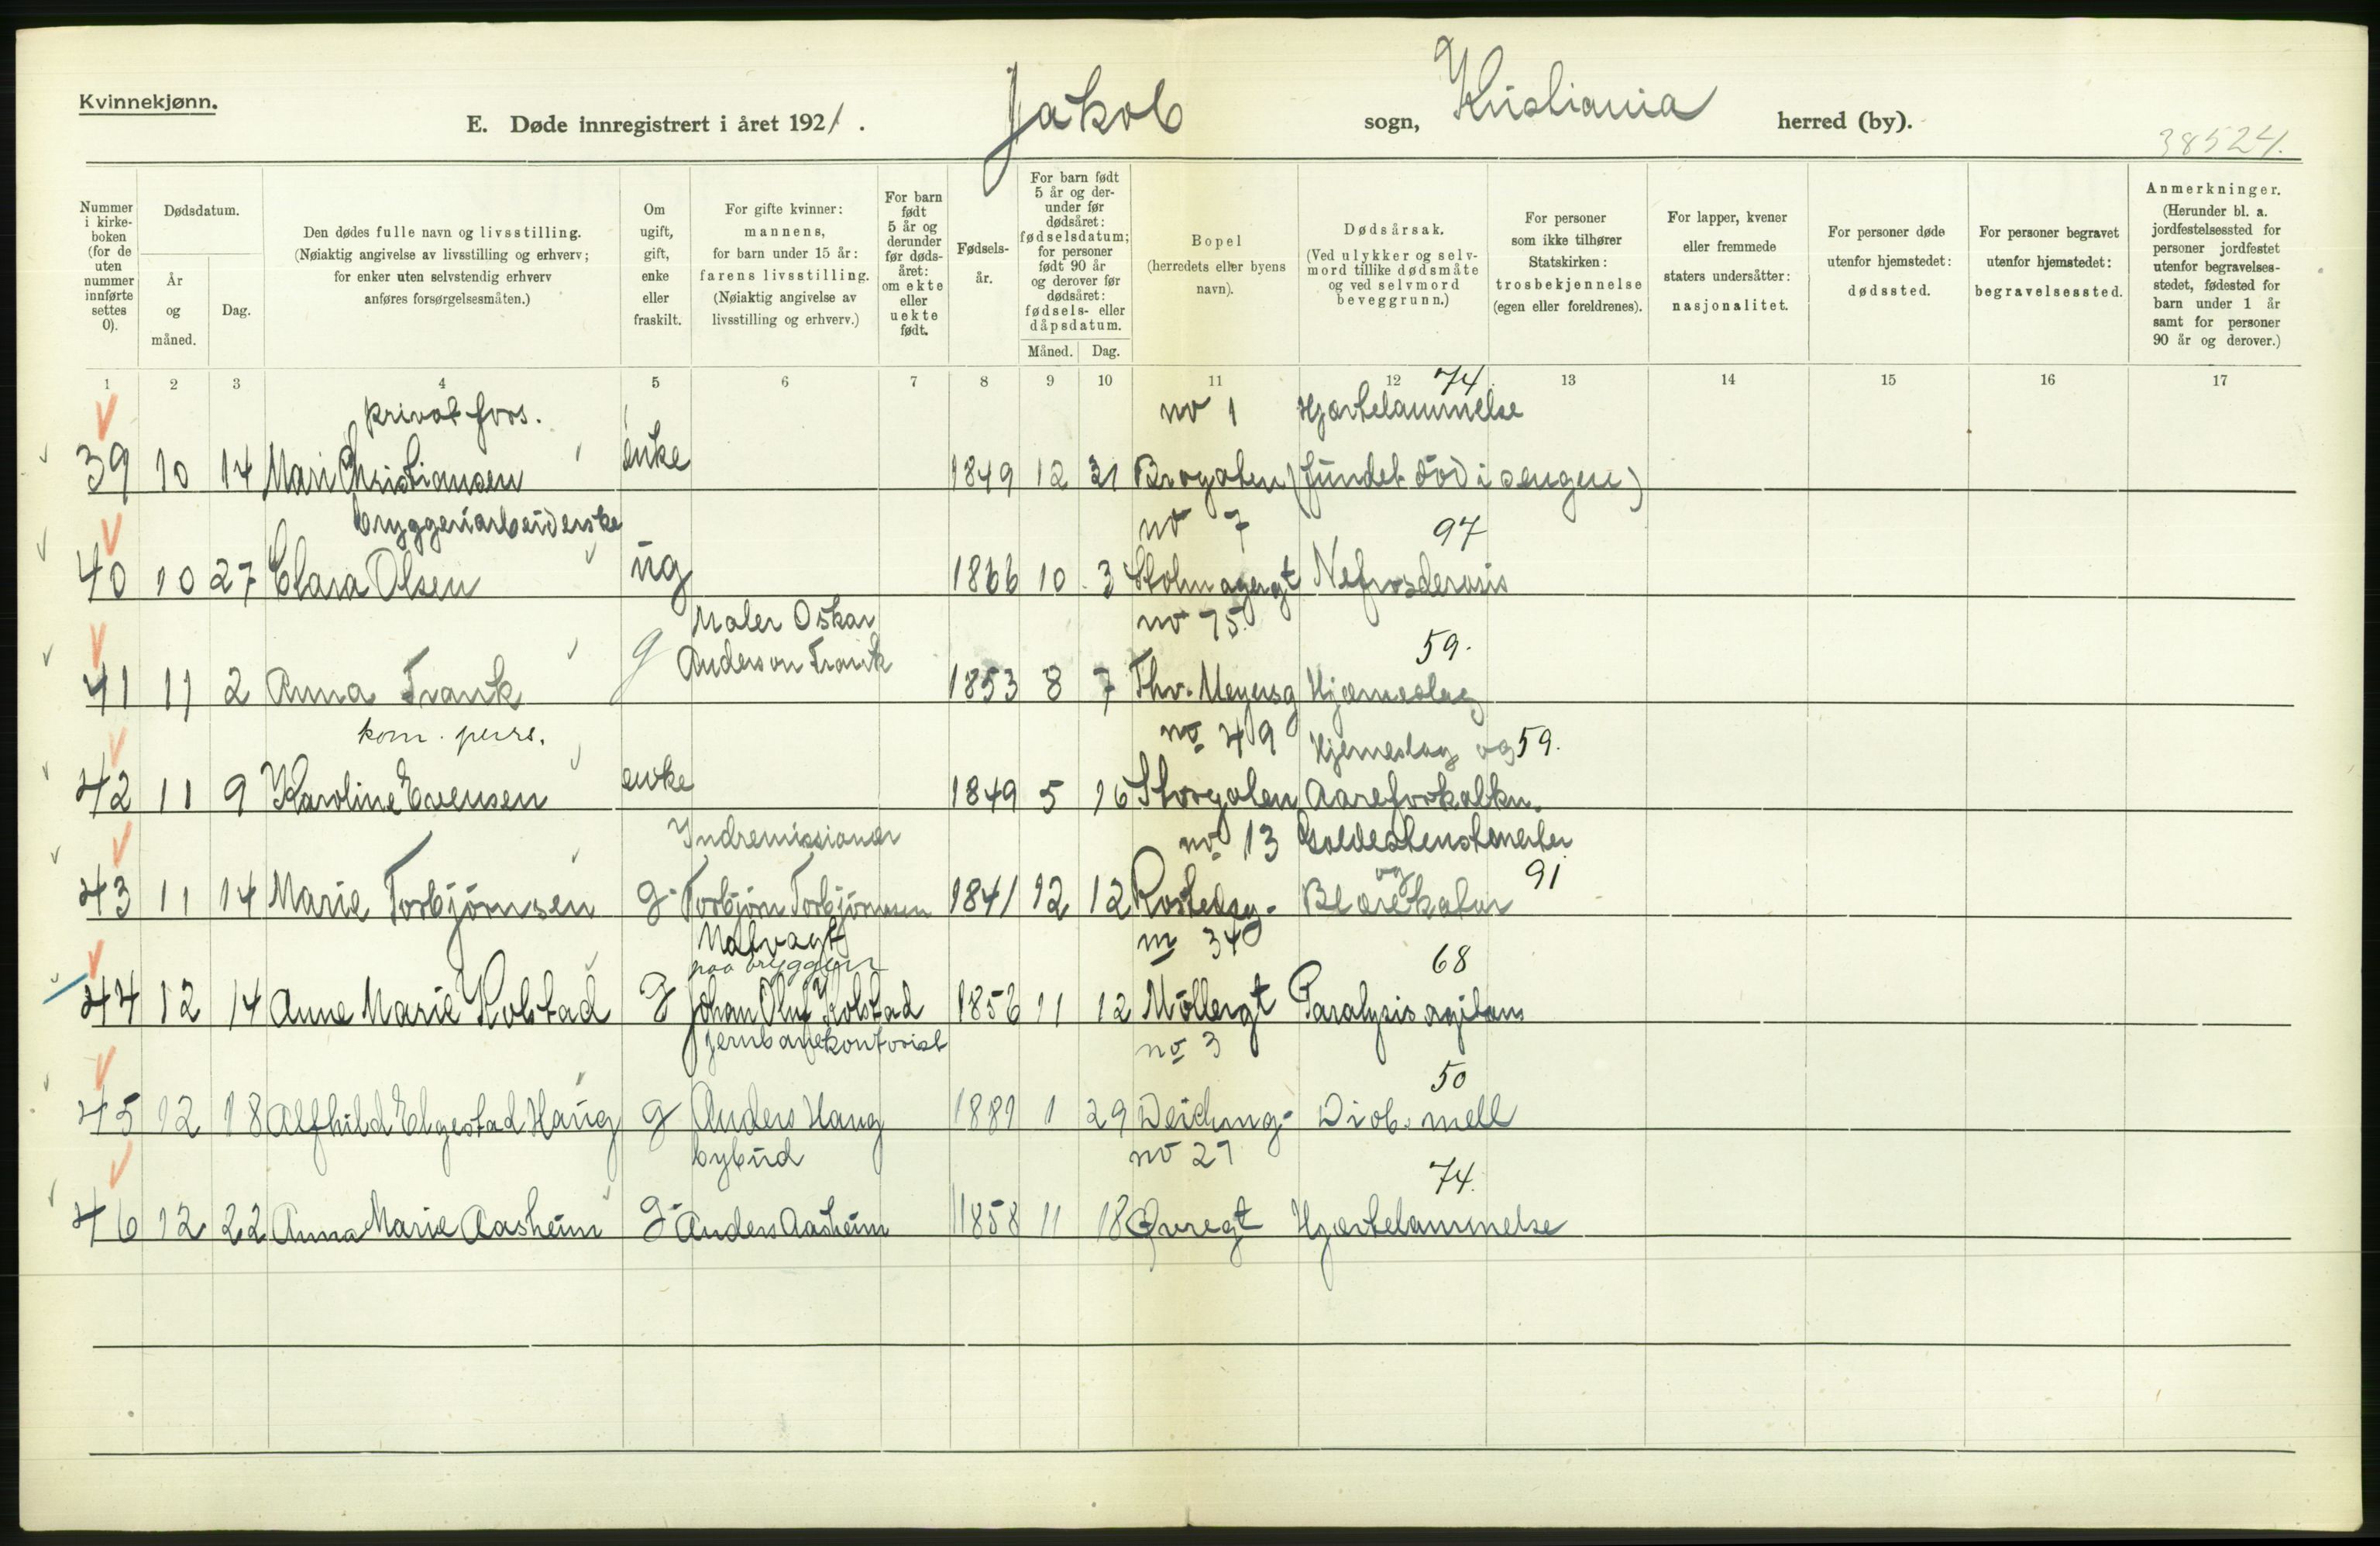 Kvinnekjønn.
E. Døde innregistrert i året 1921. Jakob sogn, Kristiania herred (by).
38524.
Nummer i kirke-boken (for de uten nummer innførte settes 0).
Dødsdatum.
År og måned.
Dag.
Den dødes fulle navn og livsstilling. (Nøiaktig angivelse av livsstilling og erhverv; for enker uten selvstendig erhverv anføres forsørgelsesmåten.)
Om ugift, gift, enke eller fraskilt.
For gifte kvinner: mannens, for barn under 15 år: farens livsstilling. (Nøiaktig angivelse av livsstilling og erhverv.)
For barn født 5 år og derunder før døds-året: om ekte eller uekte født.
Fødsels-år.
For barn født 5 år og der-under før dødsåret: fødselsdatum; for personer født 90 år og derover før dødsåret: fødsels- eller dåpsdatum.
Måned. Dag.
Bopel (herredets eller byens navn).
Dødsårsak. (Ved ulykker og selv-mord tillike dødsmåte og ved selvmord beveggrunn.)
For personer som ikke tilhører Statskirken: trosbekjennelse (egen eller foreldrenes).
For lapper, kvener eller fremmede staters undersåtter: nasjonalitet.
For personer døde utenfor hjemstedet: dødssted.
For personer begravet utenfor hjemstedet: begravelsessted.
Anmerkninger. (Herunder bl. a. jordfestelsessted for personer jordfestet utenfor begravelses-stedet, fødested for barn under 1 år samt for personer 90 år og derover.)
1 2 3 4 5 6 7 8 9 10 11 12 13 14 15 16 17
privat fors. no 1 Hjertelammelse 74.
39 10 14 Mari Christiansen enke 1849 12 31 Brogaten (fundet død i sengen)
bryggeriarbeiderske no 7 97
40 10 27 Clara Olsen ug 1866 10 3 Holmagergt Nefrosclerosis
Maler Oskar no 75. 59.
41 11 2 Anna Frank g Anderson Frank 1853 8 7 Thv. Meyersg Hjerneslag
kom. pens. no 49 Hjerneslag og 59.
42 11 9 Karoline Evensen enke 1849 5 16 Storgaten Aareforkalkn.
Indremissionær no 13 Galdestensmerter
43 11 14 Marie Torbjørnsen g Torbjørn Torbjørnsen 1841 12 12 Rostedsg. og Blærekatar 91
Natvagt paa bryggen no 34 68
44 12 14 Anne Marie Kolstad g Johan Oluf Kolstad 1856 11 12 Møllergt Paralysis agitans
Jernbanekontorist no 3 50
45 12 18 Alfhild Elgestad Haug g Anders Haug 1889 1 29 Deichmg. Diab. mell
bybud no 27 74.
46 12 22 Anna Marie Aasheim g Anders Aasheim 1858 11 18 Øvregt Hjertelammelse